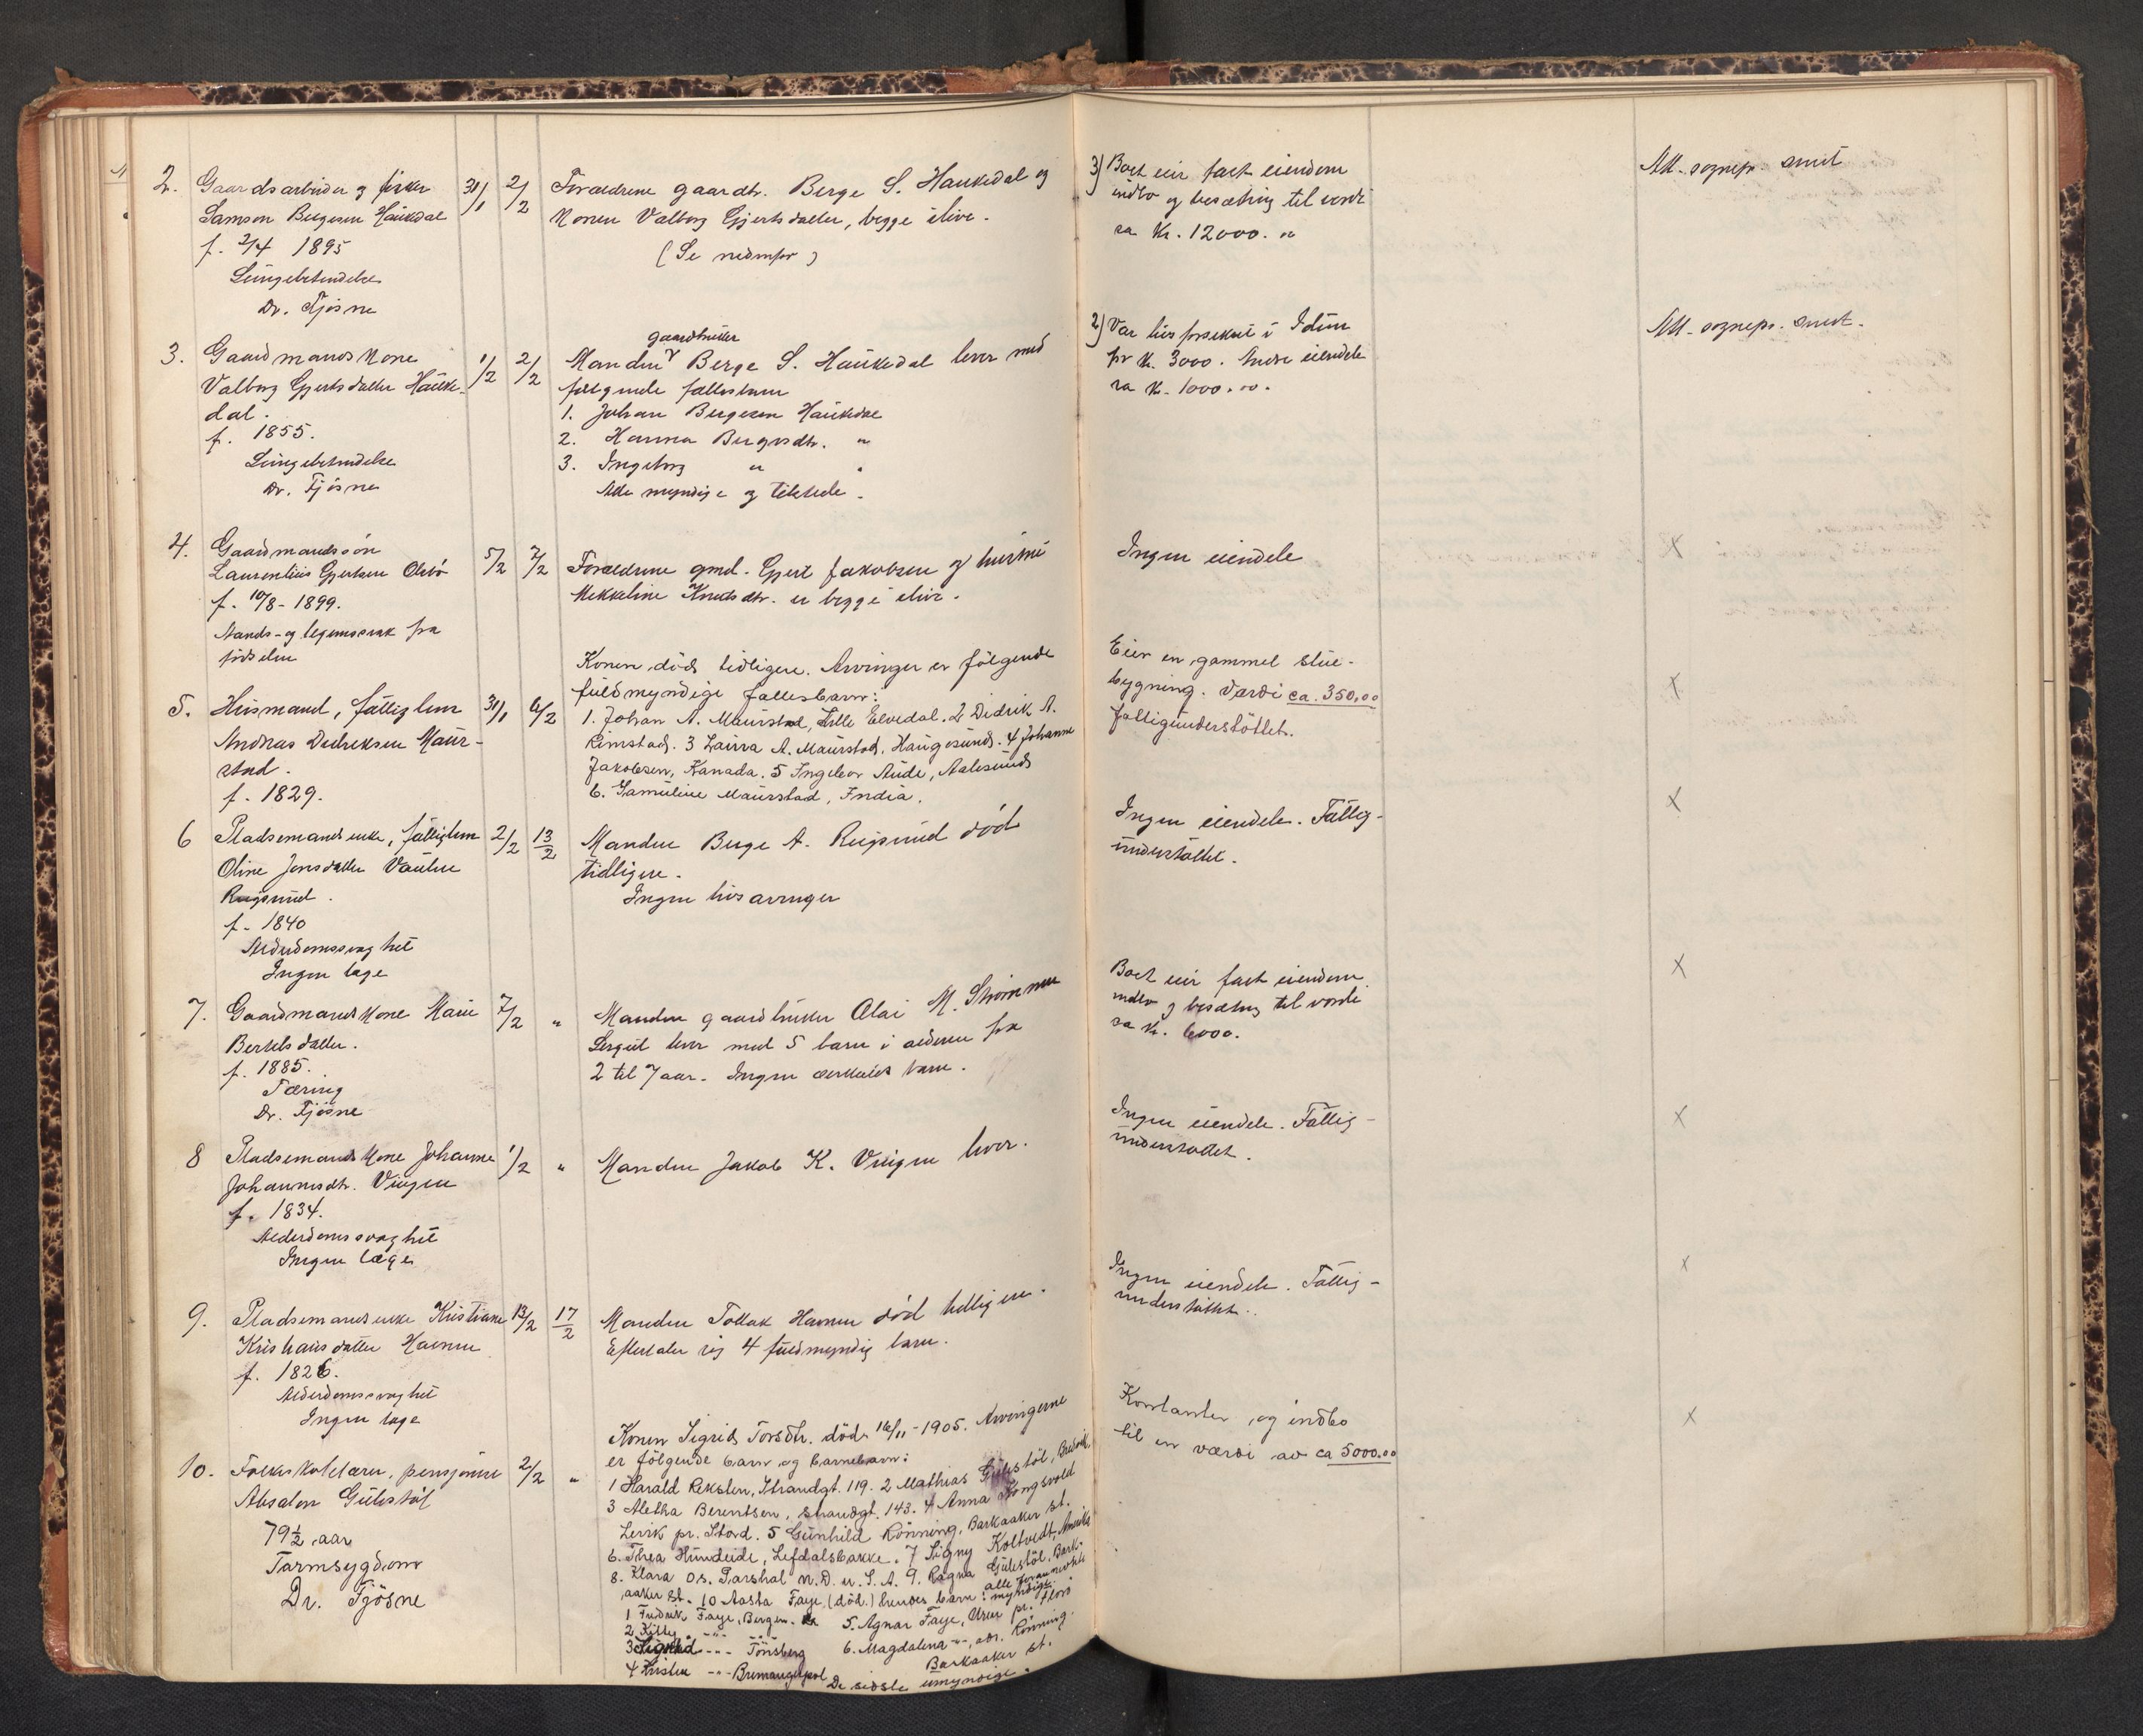 2. Gaardsarbeider og fisker
Samson Bergesen Haukedal
f. 2/4 1895
Lungebetendelse
Dr. Fjøsne
31/1 2/2
Forældrene gaardbr. Berge S. Haukedal og
konen Valborg Gjertsdatter, begge ilive.
(Se nedenfor)
3) Boet eier fast eiendom
indbo og besætning til værdi
ca Kr. 12000. "
Att. sognepr. sendt
3. Gaardmandskone
Valborg Gjertsdatter Hauke-
dal.
f. 1855.
Lungebetendelse
Dr. Fjøsne
1/2 2/2
gaardbruker
Manden Berge S. Haukedal lever med
følgende fællesbarn
1. Johan Bergesen Haukedal
2. Hanna Bergesdtr. "
3. Ingeborg " "
Alle myndige og tilstede.
2) Var livsforsikret i Idun
for Kr. 3000. Andre eiendele
ca Kr. 1000.00.
Att. sognepr. sendt.
4. Gaardmandssön
Laurentius Gjertsen Osbö
f. 10/8 - 1899.
Aands- og legemssvak fra
födselen
5/2 7/2
Forældrene gmd. Gjert Jakobsen og hustru
Mekkeline Knudsdtr. er begge ilive.
Ingen eiendele
X
5. Husmand, fattiglem
Andreas Didriksen Maur-
stad.
f. 1829.
31/1 6/2
Konen död tidligere. Arvinger er følgende
fuldmyndige fællesbarn:
1. Johan A. Maurstad, Lille Elvedal. 2 Didrik A.
Rimstad. 3 Laura A. Maurstad, Haugesund. 4 Johanne
Jakobsen, Kanada. 5 Ingeborg Aude, Aalesund
6. Samuline Maurstad, India.
Eier en gammel stue-
bygning. Værdi ca. 350,00
Fattigunderstöttet.
X
6 Pladsemandsenke, fattiglem
Oline Jonsdatter Vaulen
Rugsund.
f. 1840
Alderdomssvaghet
Ingen læge
2/2 13/2
Manden Berge A. Rugsund död
tidligere.
Ingen livsarvinger
Ingen eiendele. Fattig-
understöttet.
X
7. Gaardmandskone Marie
Bertelsdatter.
f. 1885.
Tæring
Dr. Fjøsne
7/2 "
Manden gaardbruker Olai M. Strömmen
lever med 5 barn i alderen fra
2 til 7 aar. Ingen særkulds barn.
Boet eier fast eiendom
indbo og besætning til værdi
ca Kr. 6000.
X
8 Pladsemandskone Johanne
Johannesdtr. Vingen
f. 1834.
Alderdomssvaghet
Ingen læge
1/2 "
Manden Jakob K. Vingen lever.
Ingen eiendele. Fattig-
understöttet.
X
9. Pladsemandsenke Kristiane
Kristiansdatter Hamen
f. 1826.
Alderdomssvaghet
Ingen læge
13/2 17/2
Manden Tollak Hamen död tidligere.
Efterlater sig 4 fuldmyndig barn.
Ingen eiendele. Fattig-
understöttet.
X
10. Folkeskolelærer, pensjonine
Absalon Gulestöl
79½ aar
Tarmsygdom
Dr. Fjösne
2/2 "
Konen Sigrid Torsdtr. död 16/11 - 1905. Arvingerne
er følgende barn og barnebarn:
1 Harald Rekslen, Strandgt. 119. 2 Mathias Gulestöl,
3 Aletha Berentsen, Strandgt. 143. 4 Anna Kongsvold
Lervik pr. Stord. 5 Gunhild Rönning, Barkaaker st.
6. Thea Hundeide, Lefdalsbakke. 7 Signy Koltvedt, Amerika
8. Klara Os. Parshal N.D. U.S.A. 9. Ragna Gulestöl, Bark-
aaker st. 10 Aasta Faye (död.) hendes barn: alle forannevnte myndige.
1 Fredrik Faye, Bergen. 5. Agnar Faye, pr. Florö
2 Kitty -"- -"- 6. Magdalena -"-, adr. Rönning.
3 Sigurd -"- Tönsberg Barkaaker st.
4 Kristen -"- Bremangerpol De sidste umyndige.
Kontanter og indbo
til en værdi av ca 5000.00
X